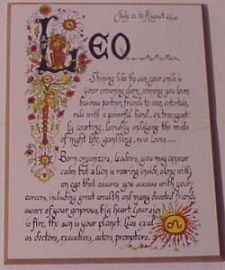 July 23 to August 22
LEO
Shining like the sun, your child is
your crowning glory, joining you love,
business partner, friends to use, entertain,
rule with a powerful hand... extravagant
ly courting, lavishly indulging the rituals
of night life, gambling, new loves...
Born organizers, leaders, you may appear
calm but a lion is roaring inside, along with
an ego that assures you success with your
careers, including great wealth and many devoted friends
aware of your generous, big heart. Your sign
is fire, the sun your planet. Leos excel
as doctors, executives, actors, promoters.